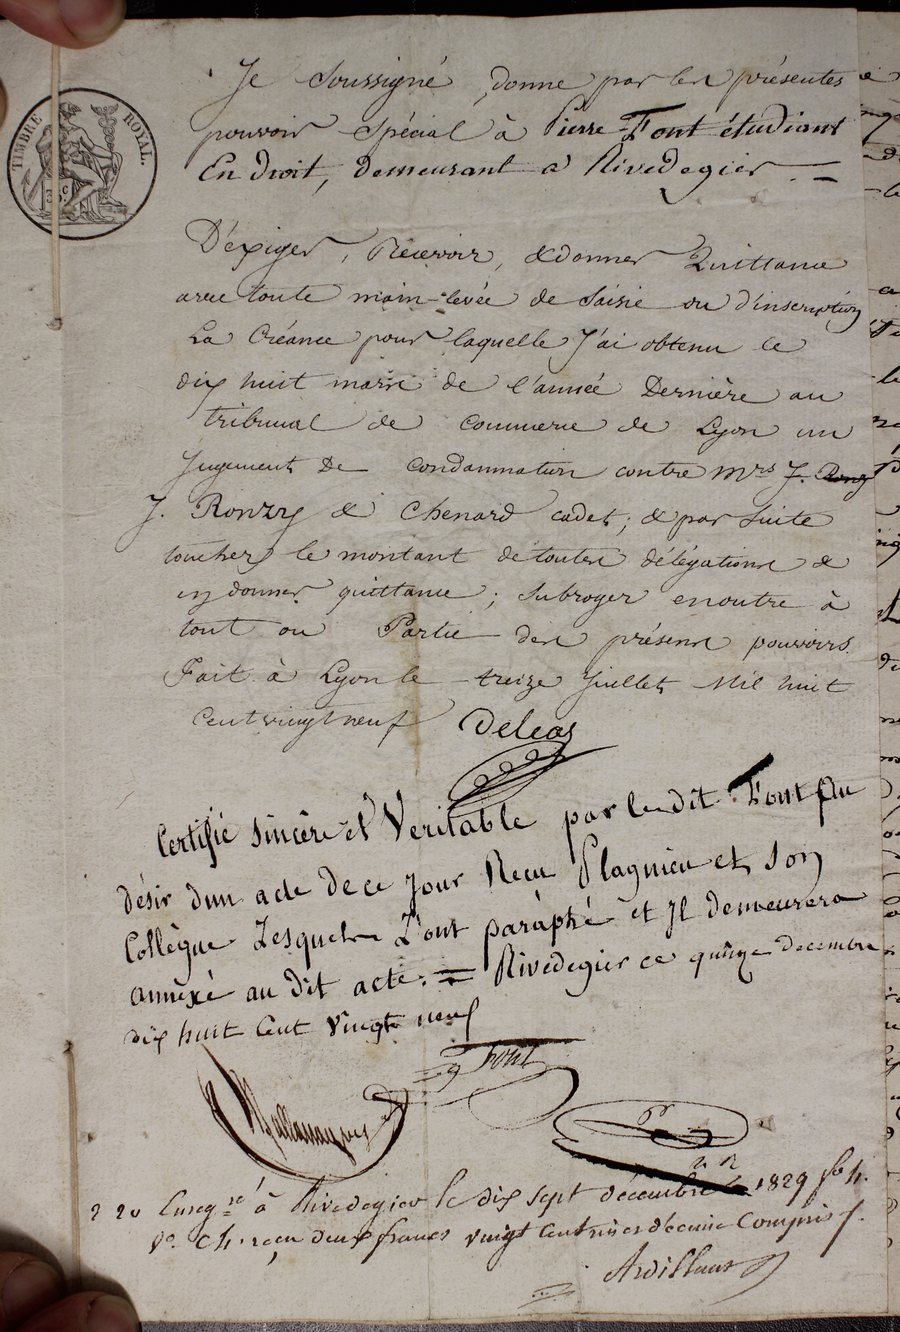 TIMBRE ROYAL.
35 c
Je soussigné, donne par les présentes
pouvoir spécial à Pierre Font étudiant
En droit, demeurant à Rivedegier. =
D'éxiger, Recevoir, & donner Quittance
avec toute main-levée de saisie ou d'inscription
La Créance pour laquelle J'ai obtenu le
dix huit mars de l'année Dernière au
tribunal de commerce de Lyon un
Jugement de condamnation contre Mrs J. Ronz
J. Ronzy & Chenard cadet; & par suite
toucher le montant de toutes délégations &
en donner quittance; subroger en outre à
tout ou Partie des présens pouvoirs.
Fait à Lyon le treize Juillet Mil huit
Cent vingt neuf Deleas
Certifié sincère et Veritable par le dit Font au
désir d'un acte de ce Jour Reçu Plagnieu et son
Collègue Lesquels L'ont paraphé et Il demeurera
annéxé au dit acte. = Rivedegier ce quinze decembre
dix huit Cent vingt neuf
Font
2 20 Enregré à Rivedegier le dix sept décembre 1829 fo 4.
Vo. Ch. reçu deux francs vingt centimes décime compris
Ardillant